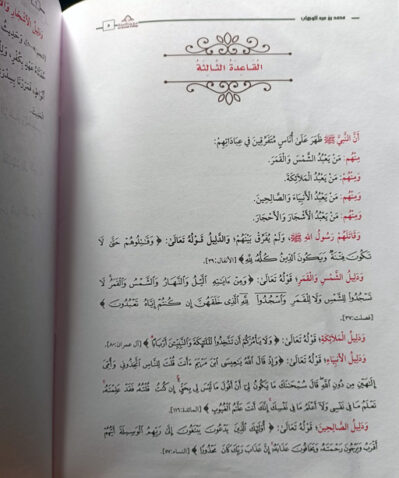 محمد بن عبد الوهاب
القَاعِدَةُ الثَّالِثَةُ
أَنَّ النَّبِيَّ ﷺ ظَهَرَ عَلَى أُنَاسٍ مُتَفَرِّقِينَ فِي عِبَادَاتِهِمْ:
مِنْهُم: مَنْ يَعْبُدُ الشَّمْسَ وَالْقَمَرَ.
وَمِنْهُم: مَنْ يَعْبُدُ المَلَائِكَةَ.
وَمِنْهُم: مَنْ يَعْبُدُ الأَنْبِيَاءَ وَالصَّالِحِينَ.
وَمِنْهُم: مَنْ يَعْبُدُ الأَشْجَارَ وَالأَحْجَارَ.
وَقَاتَلَهُمْ رَسُولُ اللهِ ﷺ، وَلَمْ يُفَرِّقْ بَيْنَهُمْ؛ وَالدَّلِيلُ قَوْلُهُ تَعَالَى: ﴿ وَقَٰتِلُوهُمْ حَتَّىٰ لَا
تَكُونَ فِتْنَةٌ وَيَكُونَ الدِّينُ كُلُّهُ لِلَّهِ ﴾ [الأنفال: ٣٩].
وَدَلِيلُ الشَّمْسِ وَالقَمَرِ؛ قَوْلُهُ تَعَالَى: ﴿ وَمِنْ ءَايَٰتِهِ اللَّيْلُ وَالنَّهَارُ وَالشَّمْسُ وَالْقَمَرُ لَا
تَسْجُدُوا لِلشَّمْسِ وَلَا لِلْقَمَرِ وَاسْجُدُوا لِلَّهِ الَّذِي خَلَقَهُنَّ إِن كُنتُمْ إِيَّاهُ تَعْبُدُونَ ﴾
[فصلت: ٣٧].
وَدَلِيلُ المَلَائِكَةِ؛ قَوْلُهُ تَعَالَى: ﴿ وَلَا يَأْمُرَكُمْ أَن تَتَّخِذُوا الْمَلَٰئِكَةَ وَالنَّبِيِّۦنَ أَرْبَابًا ﴾ [آل عمران: ٨٠].
وَدَلِيلُ الأَنْبِيَاءِ؛ قَوْلُهُ تَعَالَى: ﴿ وَإِذْ قَالَ اللَّهُ يَٰعِيسَى ابْنَ مَرْيَمَ ءَأَنتَ قُلْتَ لِلنَّاسِ اتَّخِذُونِي وَأُمِّيَ
إِلَٰهَيْنِ مِن دُونِ اللَّهِ قَالَ سُبْحَٰنَكَ مَا يَكُونُ لِي أَنْ أَقُولَ مَا لَيْسَ لِي بِحَقٍّ إِن كُنتُ قُلْتُهُ فَقَدْ عَلِمْتَهُ
تَعْلَمُ مَا فِي نَفْسِي وَلَا أَعْلَمُ مَا فِي نَفْسِكَ إِنَّكَ أَنتَ عَلَّٰمُ الْغُيُوبِ ﴾ [المائدة: ١١٦].
وَدَلِيلُ الصَّالِحِينَ؛ قَوْلُهُ تَعَالَى: ﴿ أُولَٰئِكَ الَّذِينَ يَدْعُونَ يَبْتَغُونَ إِلَىٰ رَبِّهِمُ الْوَسِيلَةَ أَيُّهُمْ
أَقْرَبُ وَيَرْجُونَ رَحْمَتَهُ وَيَخَافُونَ عَذَابَهُ إِنَّ عَذَابَ رَبِّكَ كَانَ مَحْذُورًا ﴾